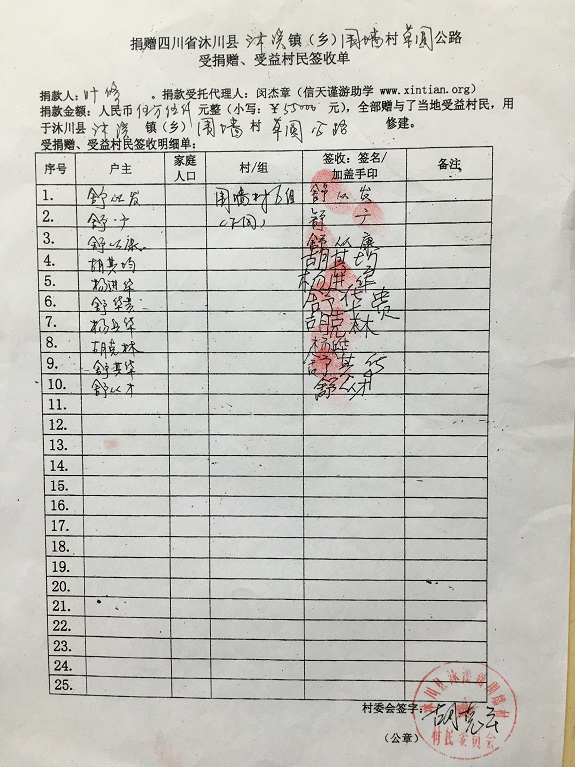 捐赠四川省沐川县 沐溪 镇（乡）围墙村草圆公路
受捐赠、受益村民签收单
捐款人：叶修 。捐款受托代理人：闵杰章（信天谨游助学 www.xintian.org）
捐款金额：人民币伍万伍仟 元整（小写：￥55000 元），全部赠与了当地受益村民，用
于沐川县 沐溪 镇（乡）围墙 村 草圆公路 修建。
受捐赠、受益村民签收明细单：
序号 户主 家庭人口 村/组 签收：签名/加盖手印 备注
1. 舒以发 围墙村6组 舒以发
2. 舒 舒
3. 舒以廉 舒以廉
4. 胡其均 胡其均
5. 杨
6. 舒华贵 舒华贵
7. 杨 胡克林
8. 胡克林 杨
9. 舒其华 舒其华
10. 舒以才 舒以才
11.
12.
13.
14.
15.
16.
17.
18.
19.
20.
21.
22.
23.
24.
25.
村委会签字：胡克云
（公章）
沐川县沐溪镇围墙村
村民委员会